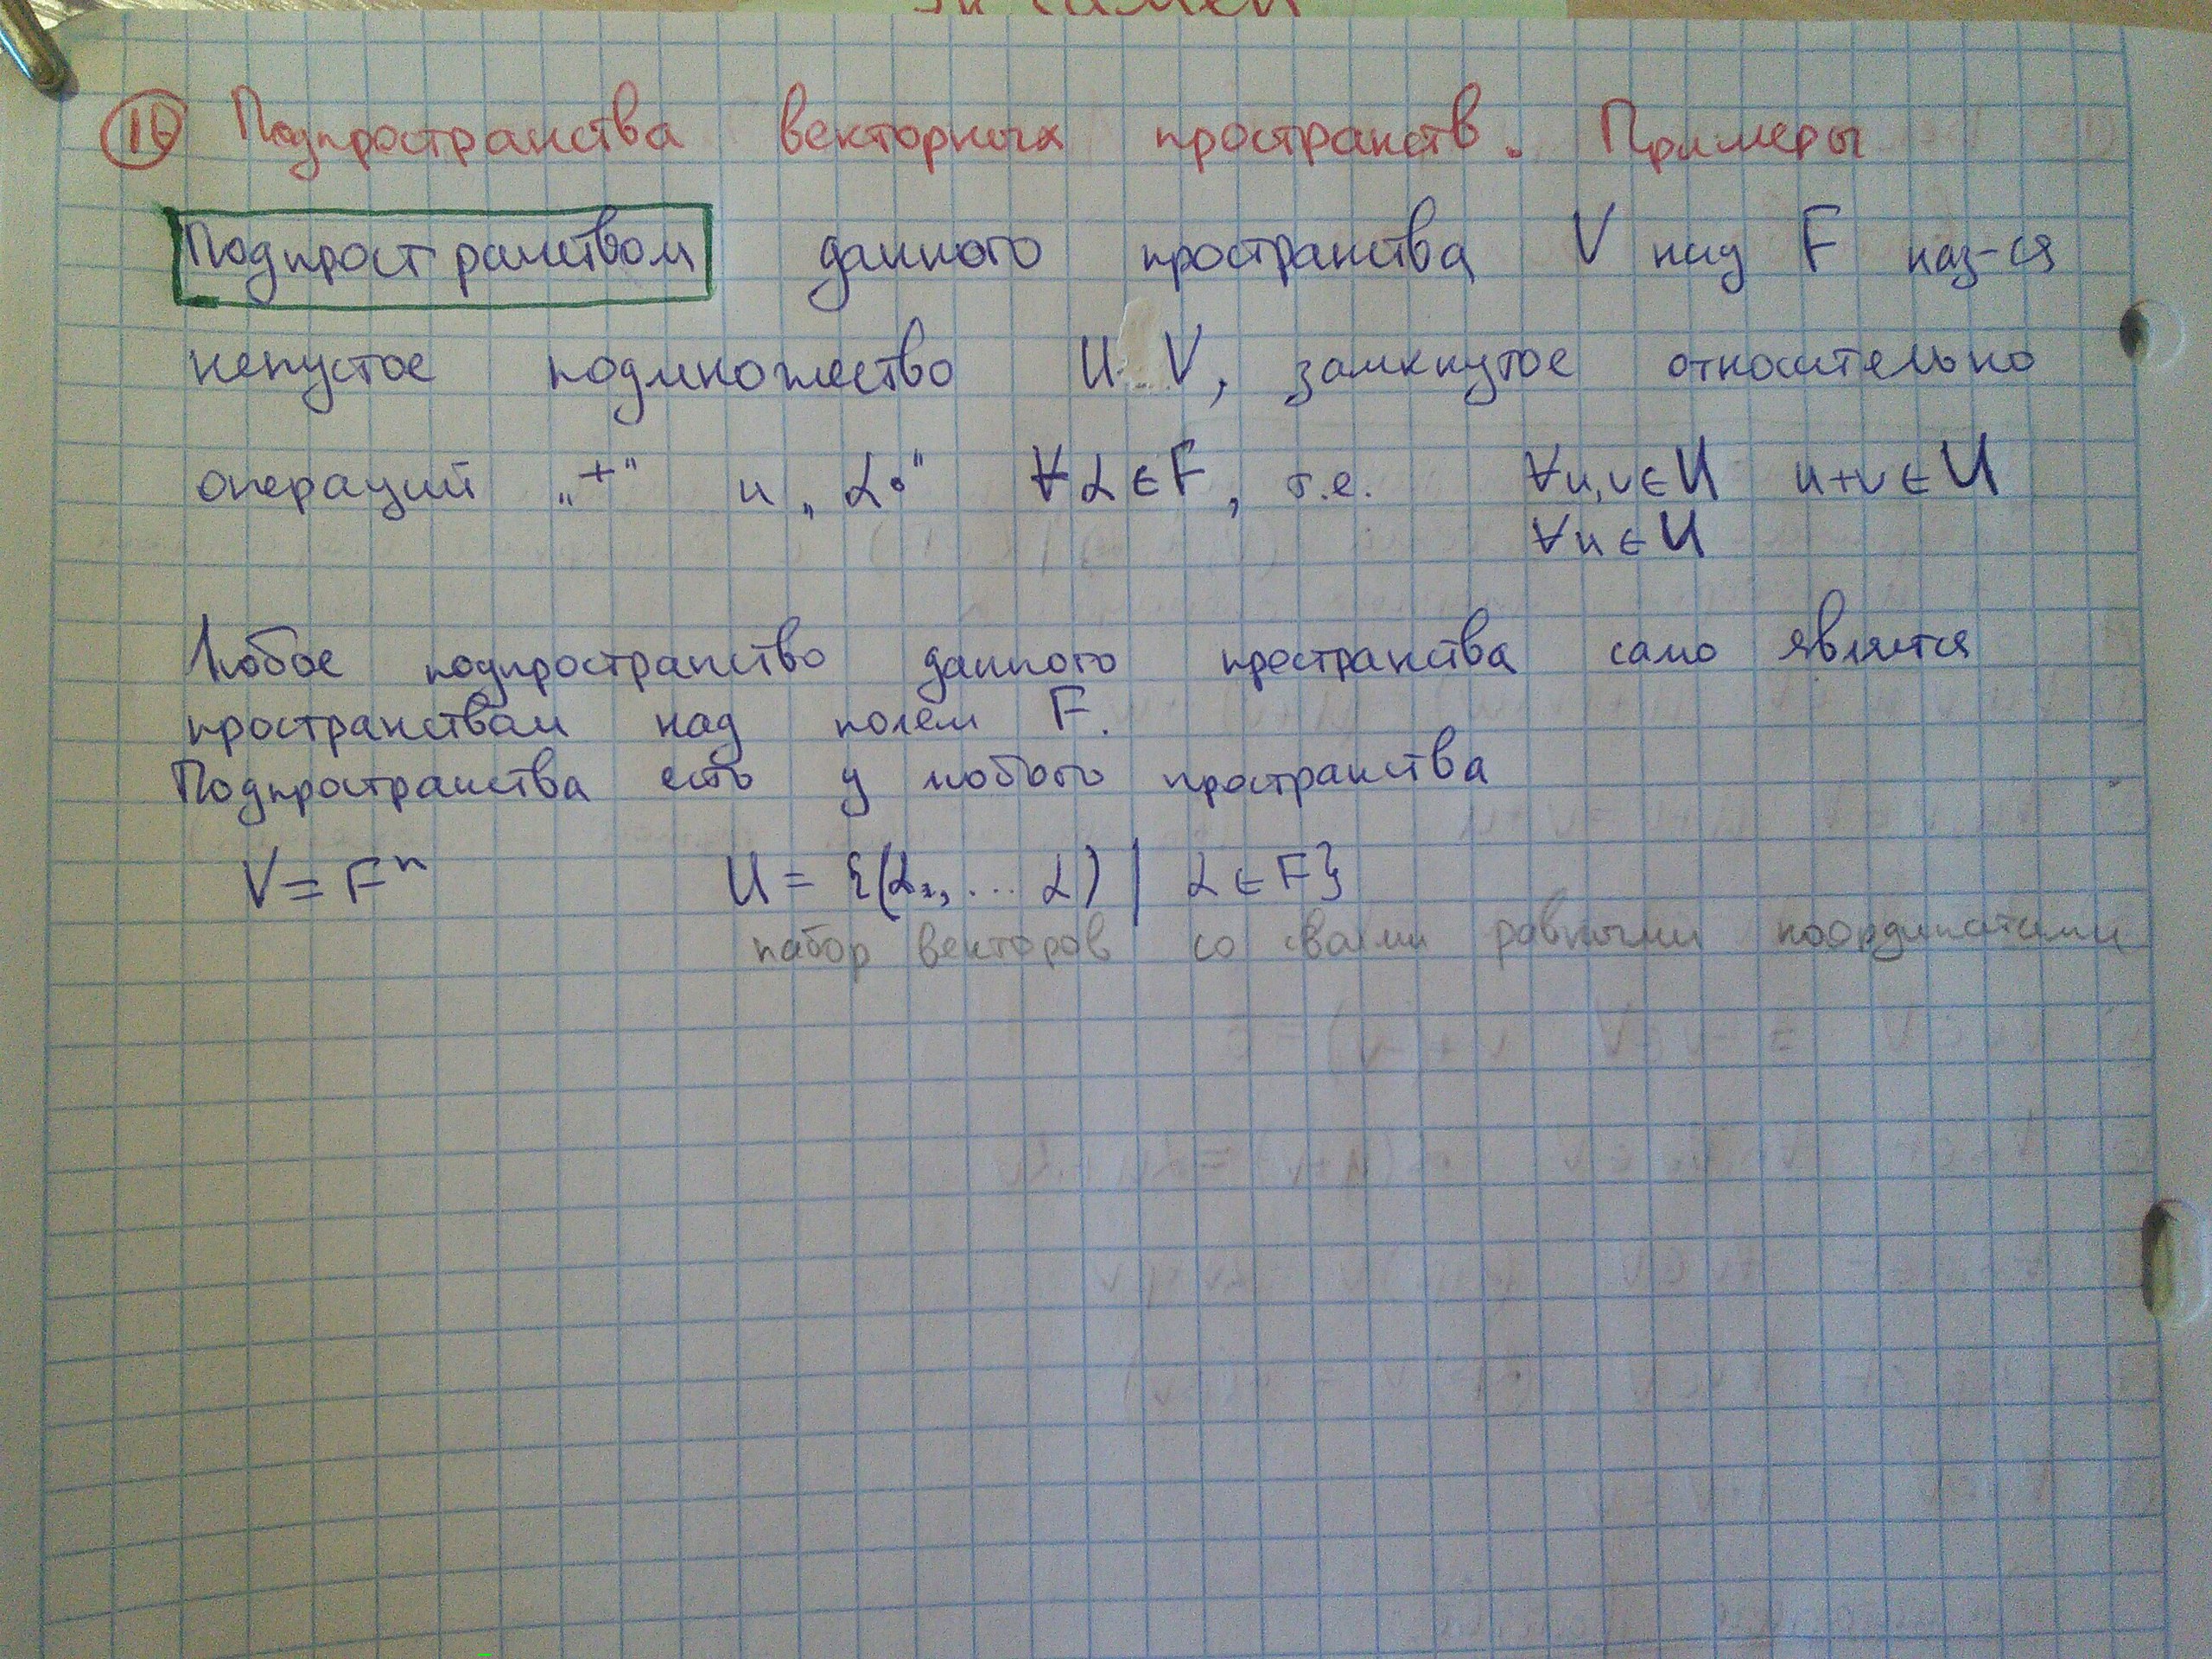 экзамен
16 Подпространства векторных пространств. Примеры
Подпространством данного пространства V над F наз-ся
непустое подмножество U V, замкнутое относительно
операций „+" и „α•" ∀α∈F, т.е. ∀u,v∈U u+v∈U
∀u∈U
Любое подпространство данного пространства само является
пространством над полем F.
Подпространства есть у любого пространства
V = Fⁿ U = {(α, ... α) | α∈F}
набор векторов со своими равными координатами